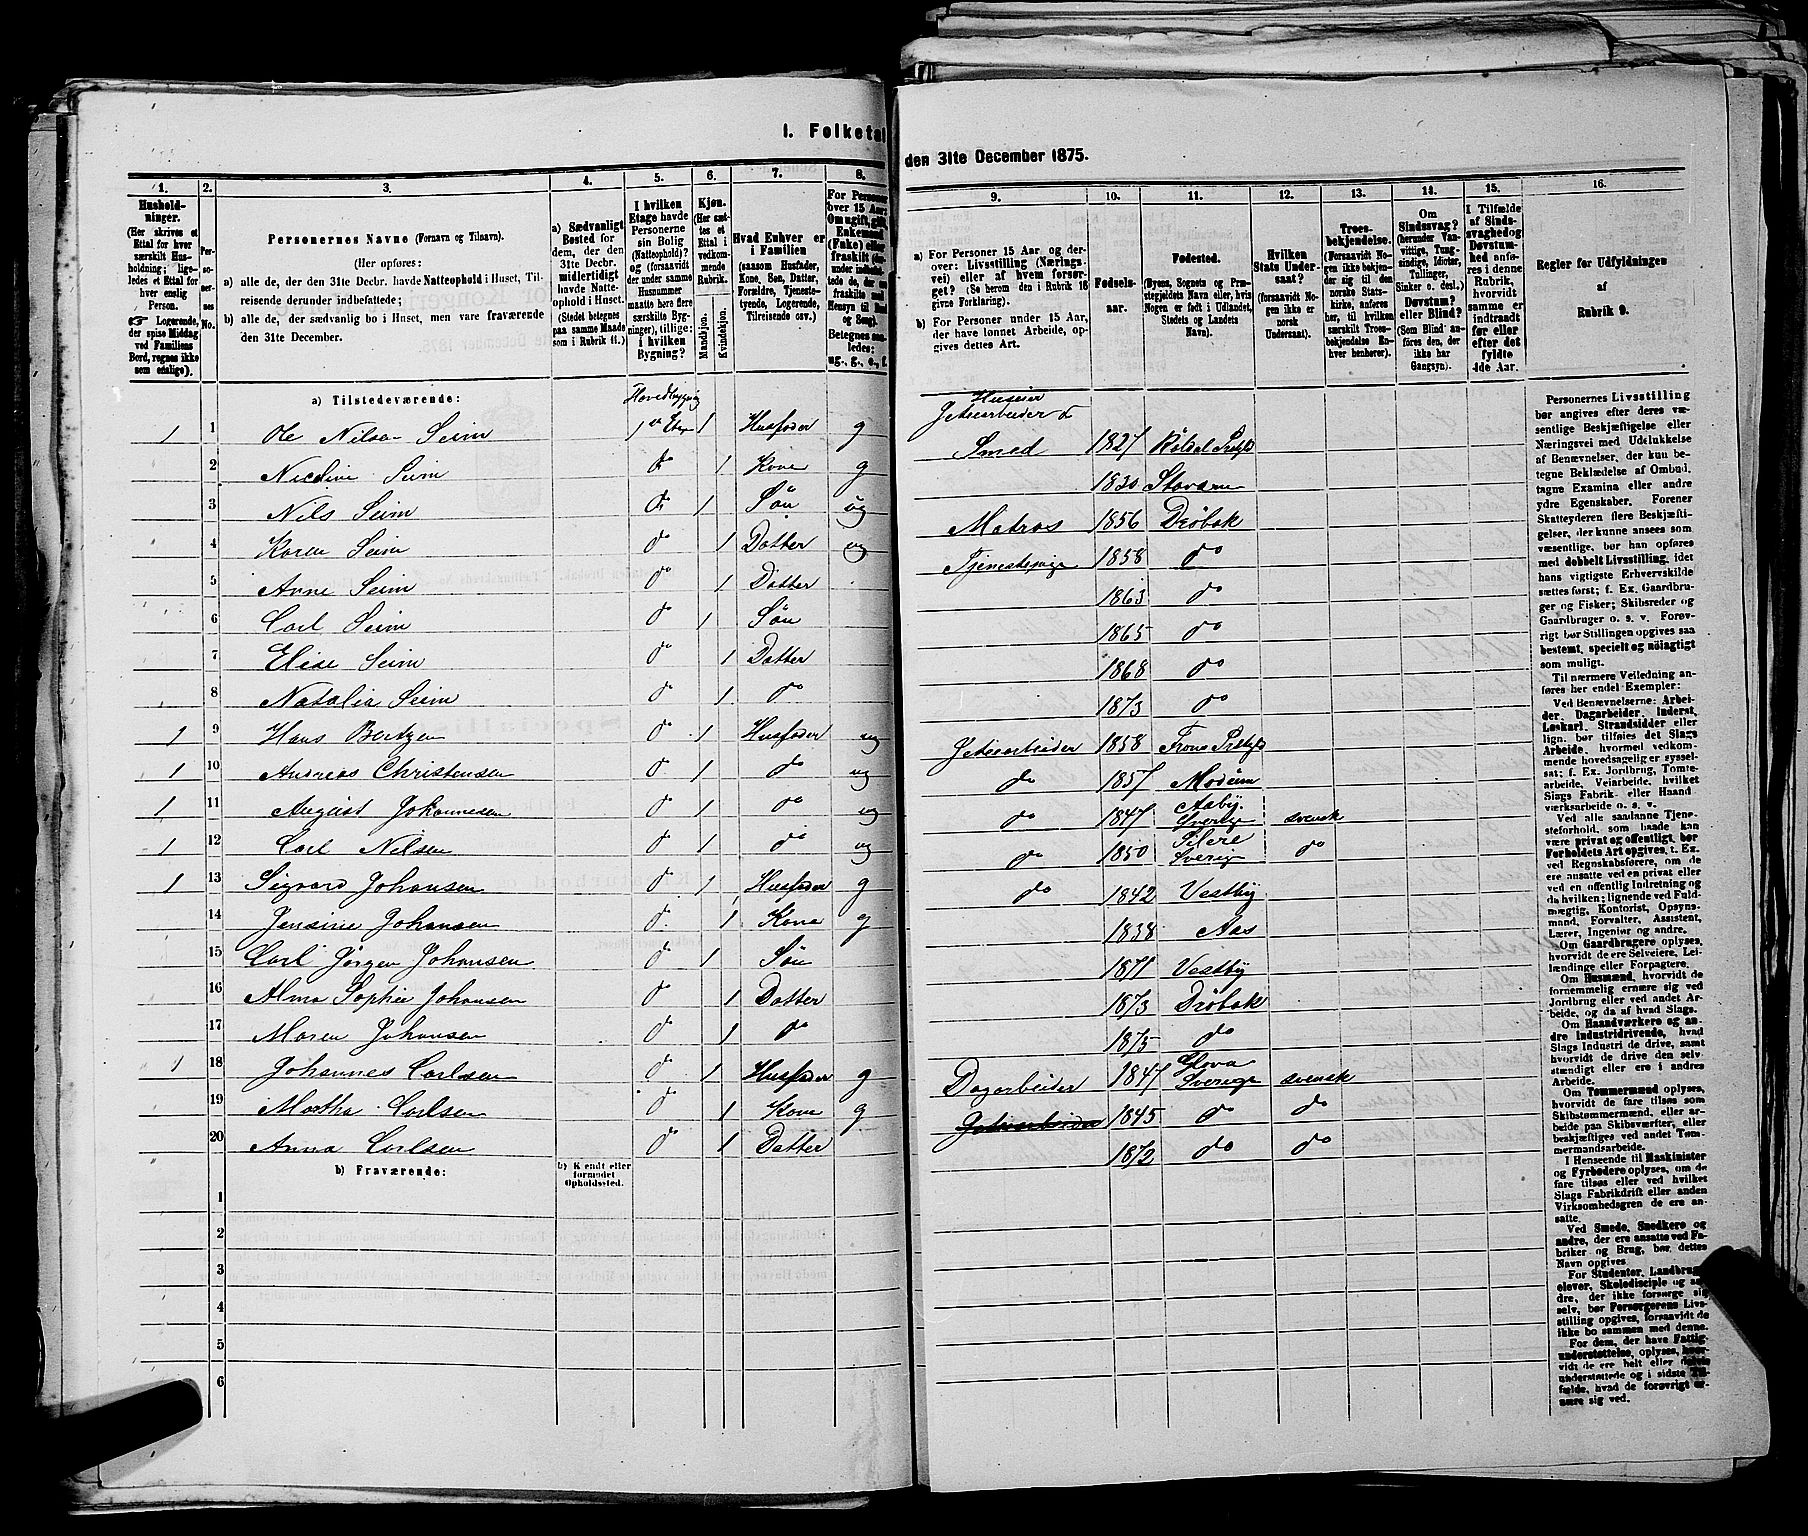 I. Folketal
den 31te December 1875.
1. 2. 3. 4. 5. 6. 7. 8.
9. 10. 11. 12. 13. 14. 15. 16.
Hushold-
ninger.
(Her skrives et
Ettal for hver
særskilt Hus-
holdning; lige-
ledes et Ettal for
hver enslig
Person.
☞ Logerende,
der spise Middag
ved Familiens
Bord, regnes ikke
som enslige).
Per-
so-
ner-
nes
No.
Personernes Navne (Fornavn og Tilnavn).
(Her opføres:
a) alle de, der den 31te Decbr. havde Natteophold i Huset, Til-
reisende derunder indbefattede;
b) alle de, der sædvanlig bo i Huset, men vare fraværende
den 31te December.
a) Sædvanligt
Bosted for
dem, der den
31te Decbr.
midlertidigt
havde Natte-
ophold i Huset.
(Stedet betegnes
paa samme Maade
som i Rubrik 11.)
I hvilken
Etage havde
Personerne
sin Bolig
(Natteophold)?
og (forsaavidt
der under samme
Husnummer
maatte høre flere
særskilte Byg-
ninger), tillige:
i hvilken
Bygning?
Kjøn.
(Her sæt-
tes et
Ettal i
vedkom-
mende
Rubrik.
Mandkjøn.
Kvindekjøn.
Hvad Enhver er
i Familien
(saasom Husfader,
Kone, Søn, Datter,
Forældre, Tjeneste-
tyende, Logerende,
Tilreisende osv.)
For Personer
over 15 Aar:
Om ugift, gift,
Enkemand
(Enke) eller
fraskilt
Betegnes saa-
ledes:
ug., g., e., f.
a) For Personer 15 Aar og der-
over: Livsstilling (Nærings-
vei) eller af hvem forsør-
get? (Se herom den i Rubrik 16
givne Forklaring).
b) For Personer under 15 Aar,
der have lønnet Arbeide, op-
gives dettes Art.
Fødsels-
aar.
Fødested.
(Byens, Sognets og Præ-
stegjeldets Navn eller, hvis
Nogen er født i Udlandet,
Stedets og Landets
Navn).
Hvilken
Stats Under-
saat?
(forsaavidt No-
gen ikke er
norsk
Undersaat).
Troes-
bekjendelse.
(Forsaavidt No-
gen ikke beken-
der sig til den
norske Stats-
kirke, anføres
her, til hvilken
særskilt Troes-
bekjendelse En-
hver henhører).
Om
Sindssvag?
(herunder Van-
vittige, Tung-
sindige, Idioter,
Tullinger,
Sinker o. desl.)
Døvstum?
eller Blind?
(Som Blind an-
føres den, der
ikke har
Gangsyn).
I Tilfælde
af Sinds-
svaghed og
Døvstum-
hed anfø-
res i denne
Rubrik,
hvorvidt
samme er
indtraadt
før eller
efter det
fyldte
4de Aar.
Regler for Udfyldningen
af
Rubrik 9.
a) Tilstedeværende: Hovedbygning
1 1 Ole Nilsen Seim 1 Husfader g Smed 1827
2 Nicoline Seim do 1 Kone g 1830
3 Nils Seim do 1 Søn ug Matros 1856 Drøbak
4 Karen Seim do 1 Datter ug Tjenestepige 1858 do
5 Anne Seim do 1 Datter 1863 do
6 Carl Seim do 1 Søn 1865 do
7 Elise Seim do 1 Datter 1868 do
8 Natalia Seim do 1 do 1873 do
1 9 Hans Bentzen do 1 Husfader ug 1858
1 10 Andreas Christensen do 1 do ug do 1857 Modum
1 11 August Johannesen do 1 do ug do 1847 Aaby Sverige svensk
1 12 Carl Nilsen do 1 do ug do 1850 Sverig do
1 13 Sigvard Johansen do 1 Husfader g do 1842 Vestby
14 Jensine Johansen do 1 Kone g 1838 Aas
15 Carl Jørgen Johansen do 1 Søn 1871 Vestby
16 Alma Sophie Johansen do 1 Datter 1873 Drøbak
17 Maren Johansen do 1 do 1875 do
1 18 Johannes Carlsen do 1 Husfader g Dagarbeider 1847 Sverige svensk
19 Martha Carlsen do 1 Kone g 1845 do do
20 Anna Carlsen do 1 Datter 1872 do do
b) Fraværende:
b) Kendt eller
formodet
Opholdssted.
1
2
3
4
5
6
Personernes Livsstilling
bør angives efter deres væ-
sentlige Beskjæftigelse eller
Næringsvei med Udelukkelse
af Benævnelser, der kun be-
tegne Beklædelse af Ombud,
tagne Examina eller andre
ydre Egenskaber. Forener
Skatteyderen flere Beskjæfti-
gelser, der kunne ansees som
væsentlige, bør han opføres
med dobbelt Livsstilling, idet
hans vigtigste Erhvervskilde
sættes først; f. Ex. Gaardbru-
ger og Fisker; Skibsreder og
Gaardbruger o. s. v. Forøv-
rigt bør Stillingen opgives saa
bestemt, specielt og nöiagtigt
som muligt.
Til nærmere Veiledning an-
føres her endel Exempler:
Ved Benævnelserne: Arbei-
der, Dagarbeider, Inderst,
Løskarl, Strandsidder eller
lign. bør tilføies det Slags
Arbeide, hvormed vedkom-
mende hovedsagelig er syssel-
sat; f. Ex. Jordbrug, Tomte-
arbeide, Veiarbeide, hvilket
Slags Fabrik- eller Haand-
værksarbeide o. s. v.
Ved alle saadanne Tjene-
steforhold, som baade kan
være privat og offentligt, bør
Forholdets Art opgives, t. Ex.
ved Regnskabsførere, om de
ere ansatte ved en privat eller
ved en offentlig Indretning og
da hvilken; lignende ved Fuld-
mægtig, Kontorist, Opsyns-
mand, Forvalter, Assistent,
Lærer, Ingeniør og andre.
Om Gaardbrugere oplyses,
hvorvidt de ere Selveiere, Lei-
lændinge eller Forpagtere.
Om Husmænd, hvorvidt de
fornemmelig ernære sig ved
Jordbrug eller ved andet Ar-
beide, og da af hvad Slags.
Om Haandværkere og an-
dre Industridrivende, hvad
Slags Industri de drive, samt
hvorvidt de drive den selv-
stændigt eller ere i andres
Arbeide.
Om Tømmermænd oplyses,
hvorvidt de fare tilsøs som
Skibstømmermænd, eller ar-
beide paa Skibsværfter, eller
beskjæftiges ved andet Tøm-
mermandsarbeide.
I Henseende til Maskinister
og Fyrbødere oplyses, om de
fare tilsøs eller ved hvilket
Slags Fabrikdrift eller anden
Virksomhedsgren de ere an-
satte.
Ved Smede, Snedkere og
andre, der ere ansatte ved Fa-
briker og Brug, bør dettes
Navn opgives.
For Studenter, Landbrugs-
elever, Skoledisciple og an-
dre, der ikke forsørge sig
selv, bør Forsørgerens Livs-
stilling opgives, forsaavidt de
ikke bo sammen med denne.
For dem, der have Fattig-
understøttelse, oplyses, hvor-
vidt de ere helt eller delvis
understøttede og i sidste Til-
fælde, hvad de forøvrigt er-
nære sig ved.